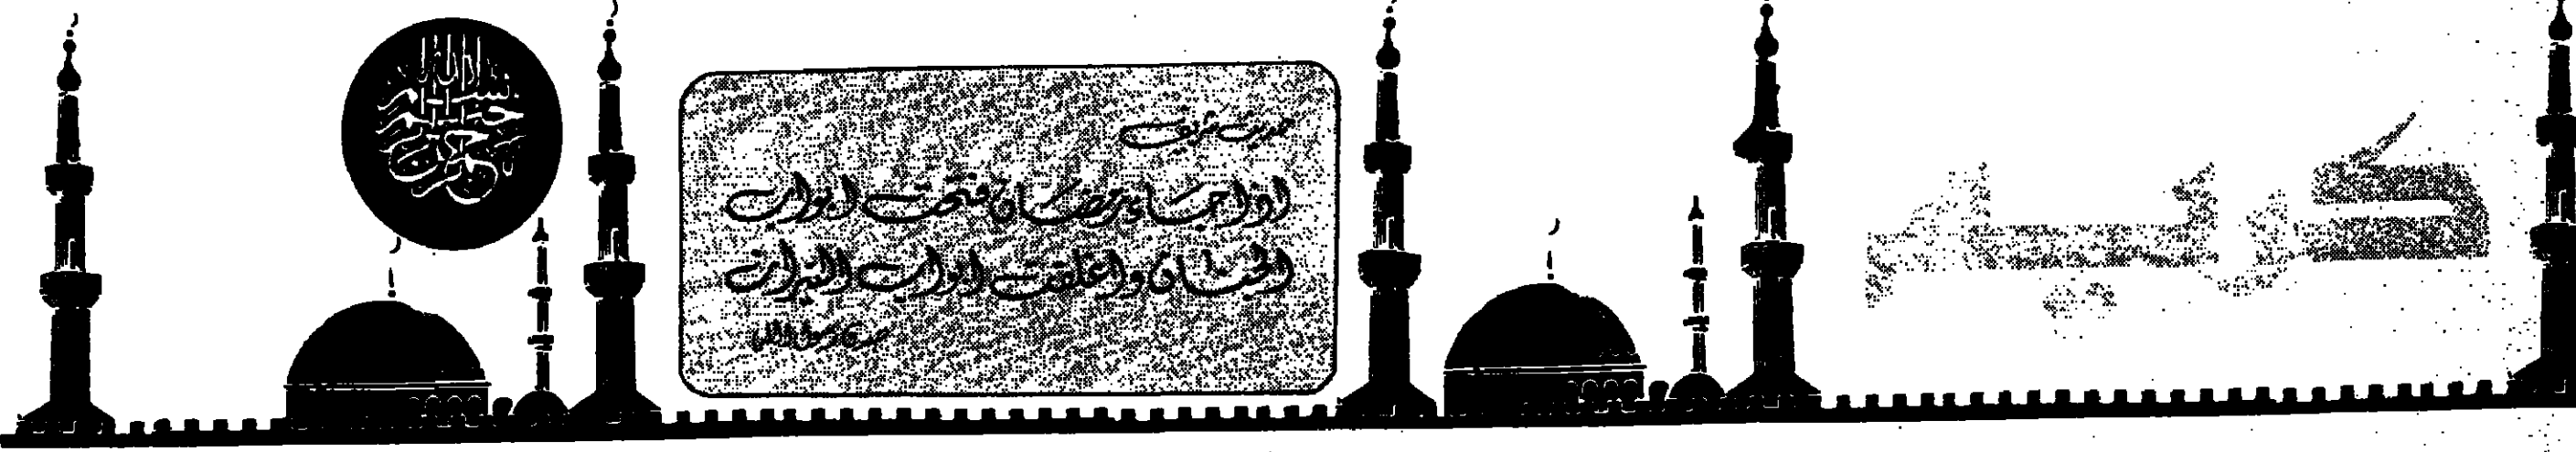 بسم الله الرحمن الرحيم
حديث شريف
اذا جاء رمضان فتحت ابواب
الجنان واغلقت ابواب النيران
صدق رسول الله